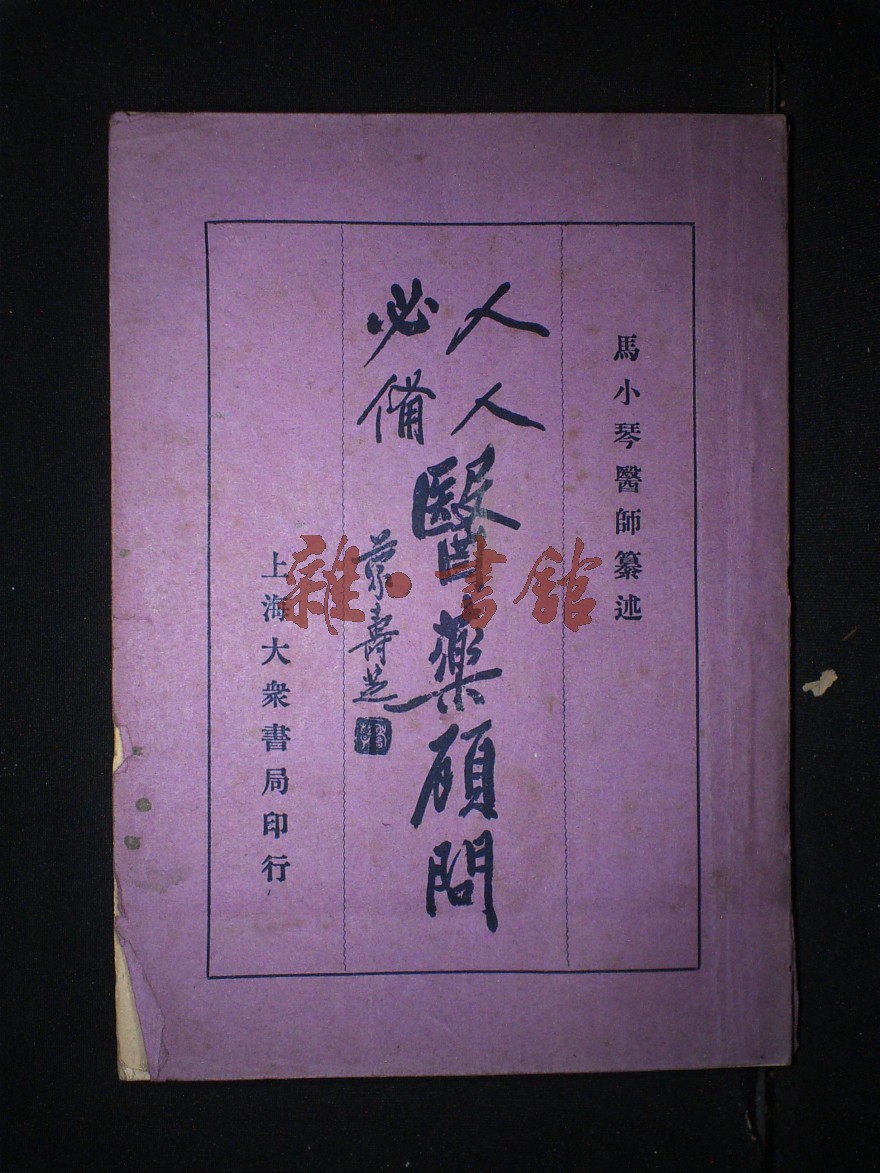 馬小琴醫師纂述
人人
必備
醫藥顧問
蔡壽芝
上海大衆書局印行
雜·書館